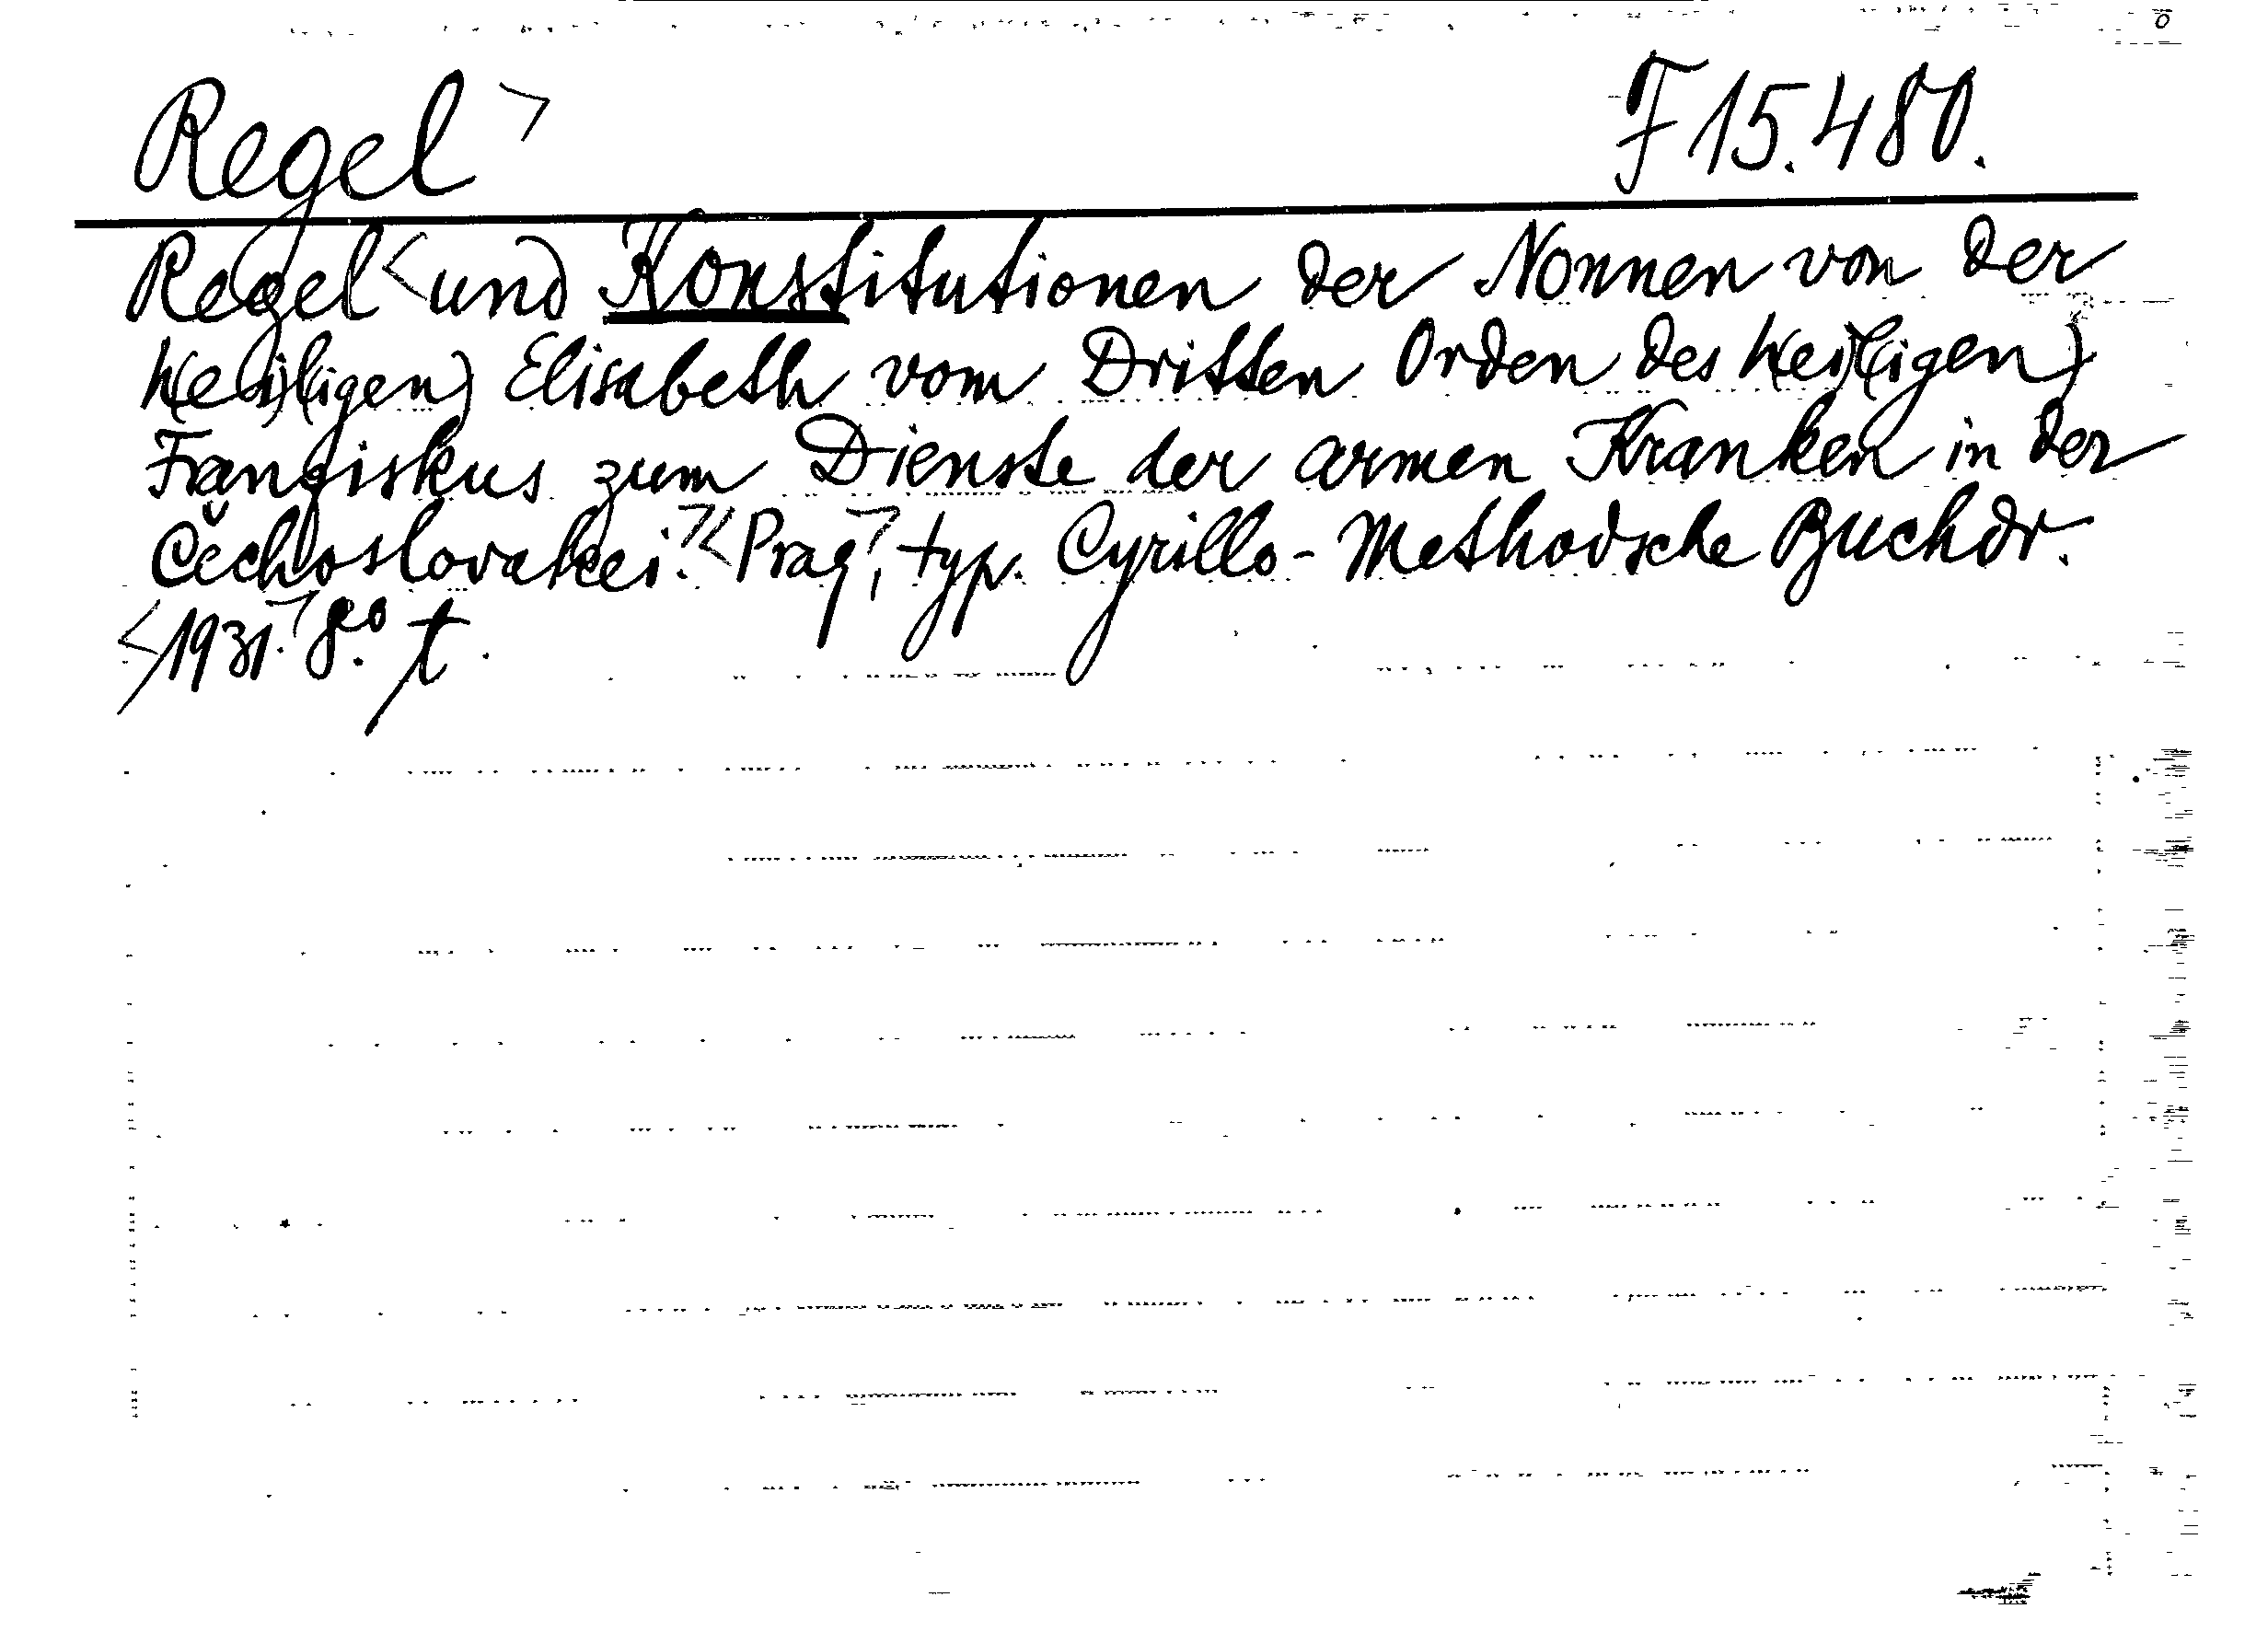 Regel ¬ F 15.480.
Regel < und Konstitutionen der Nonnen von der
H(eiligen) Elisabeth vom Dritten Orden des H(eiligen)
Franziskus zum Dienste der armen Kranken in der
Čechoslovakei.¬< Prag¬, typ. Cyrillo-Methodsche Buchdr.
<1931.¬ 8°. t.